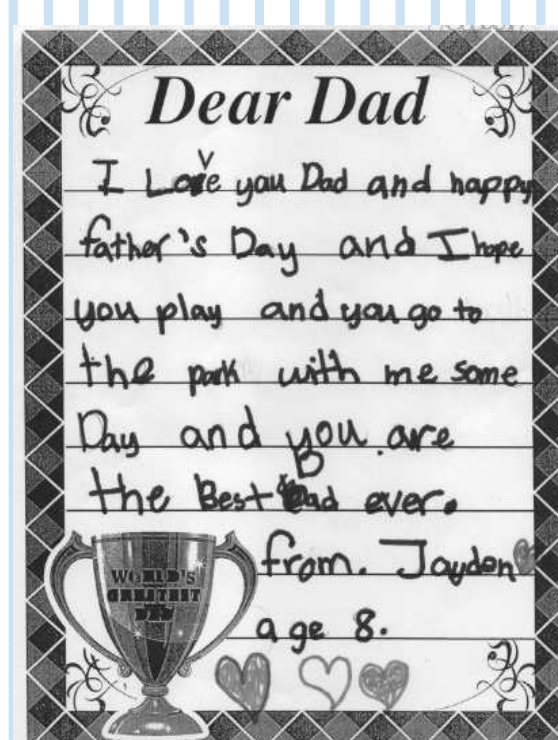 Dear Dad
I Love you Dad and happy
father's Day and I hope
you play and you go to
the park with me some
Day and you are
the Best Dad ever.
from. Jayden
age 8.
WORLD'S
GREATEST
DAD